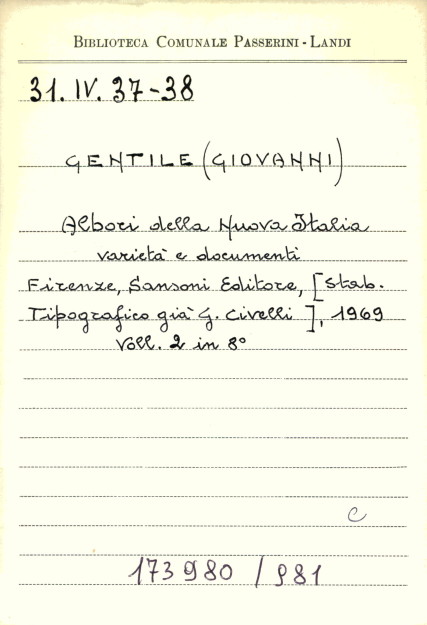 BIBLIOTECA COMUNALE PASSERINI - LANDI
31. IV. 37-38
GENTILE (GIOVANNI)
Albori della Nuova Italia
varietà e documenti
Firenze, Sansoni Editore, [Stab.
Tipografico già G. Civelli], 1969
Voll. 2 in 8°
C
173980 / 981